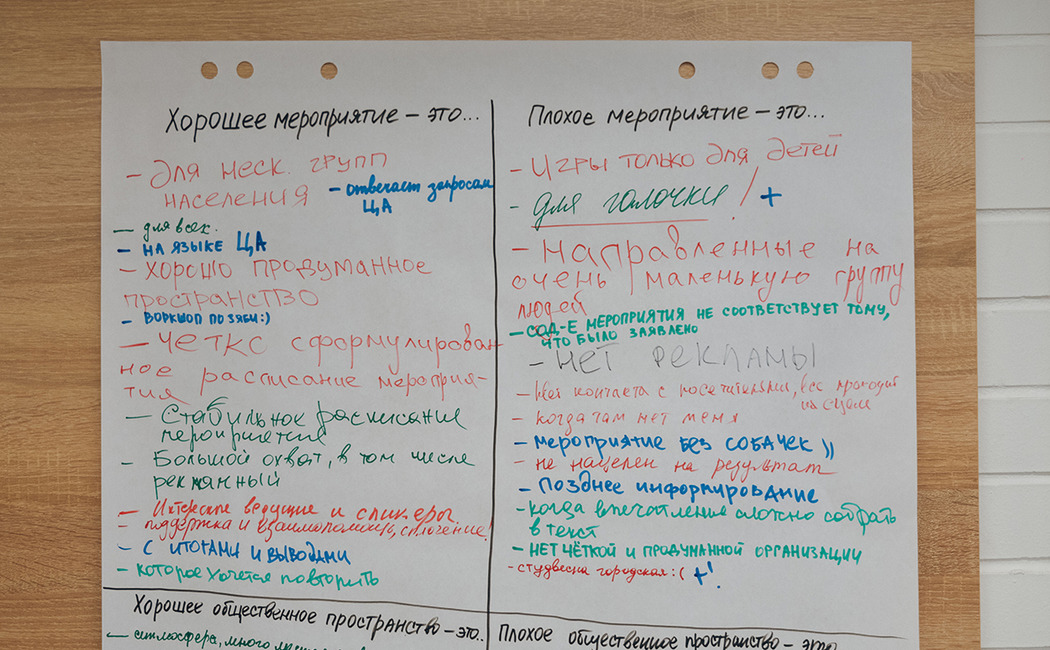 Хорошее мероприятие – это...
- Для неск. групп
населения
- отвечает запросам
ЦА
- для всех.
- на языке ЦА
- Хорошо продуманное
пространство
- воркшоп по
- Четкс сформулирован
ное расписание мероприя-
тия
- Стабильнок расписание
мероприятие
- Большой охват, в том числе
рекламный
- Интерские ведущие и спикеры.
- поддержка и взаимопомощь, сплочение!
- С итогами и выводами
- которое хочется повторить
Плохое мероприятие – это...
- Игры только для детей
- для галочки! +
- Направленные на
очень маленькую группу
людей
- сод-е мероприятия не соответствует тому,
что было заявлено
- Нет рекламы
- Нет контакта с посетителями, все проходит
на сцене
- когда там нет меня
- мероприятие без собачек ))
- не нацелен на результат
- Позднее информирование
- когда впечатления сложно собрать
в текст
- нет чёткой и продуманной организации
- студвесна городская :( +!
Хорошее общественное пространство – это..
- атмосфера, много
Плохое общественное пространство – это